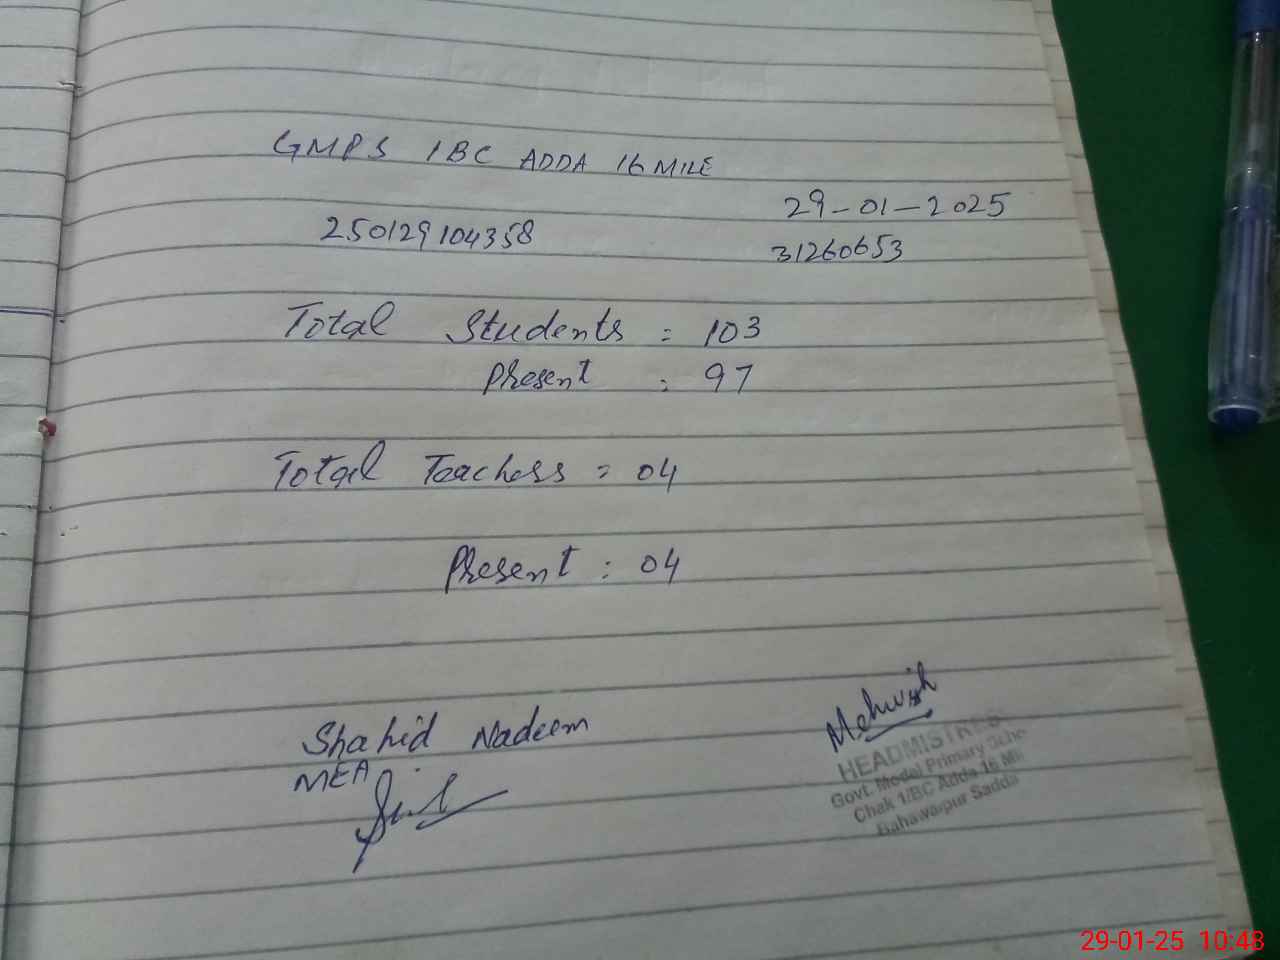 GMPS 1BC ADDA 16 MILE
29-01-2025
250129104358
31260653
Total Students : 103
Present : 97
Total Teachers = 04
Present : 04
Shahid Nadeem
MEA
Mehwish
HEADMISTRESS
Govt. Model Primary Scho
Chak 1/BC Adda 16 Mil
Bahawalpur Sadda
29-01-25 10:48